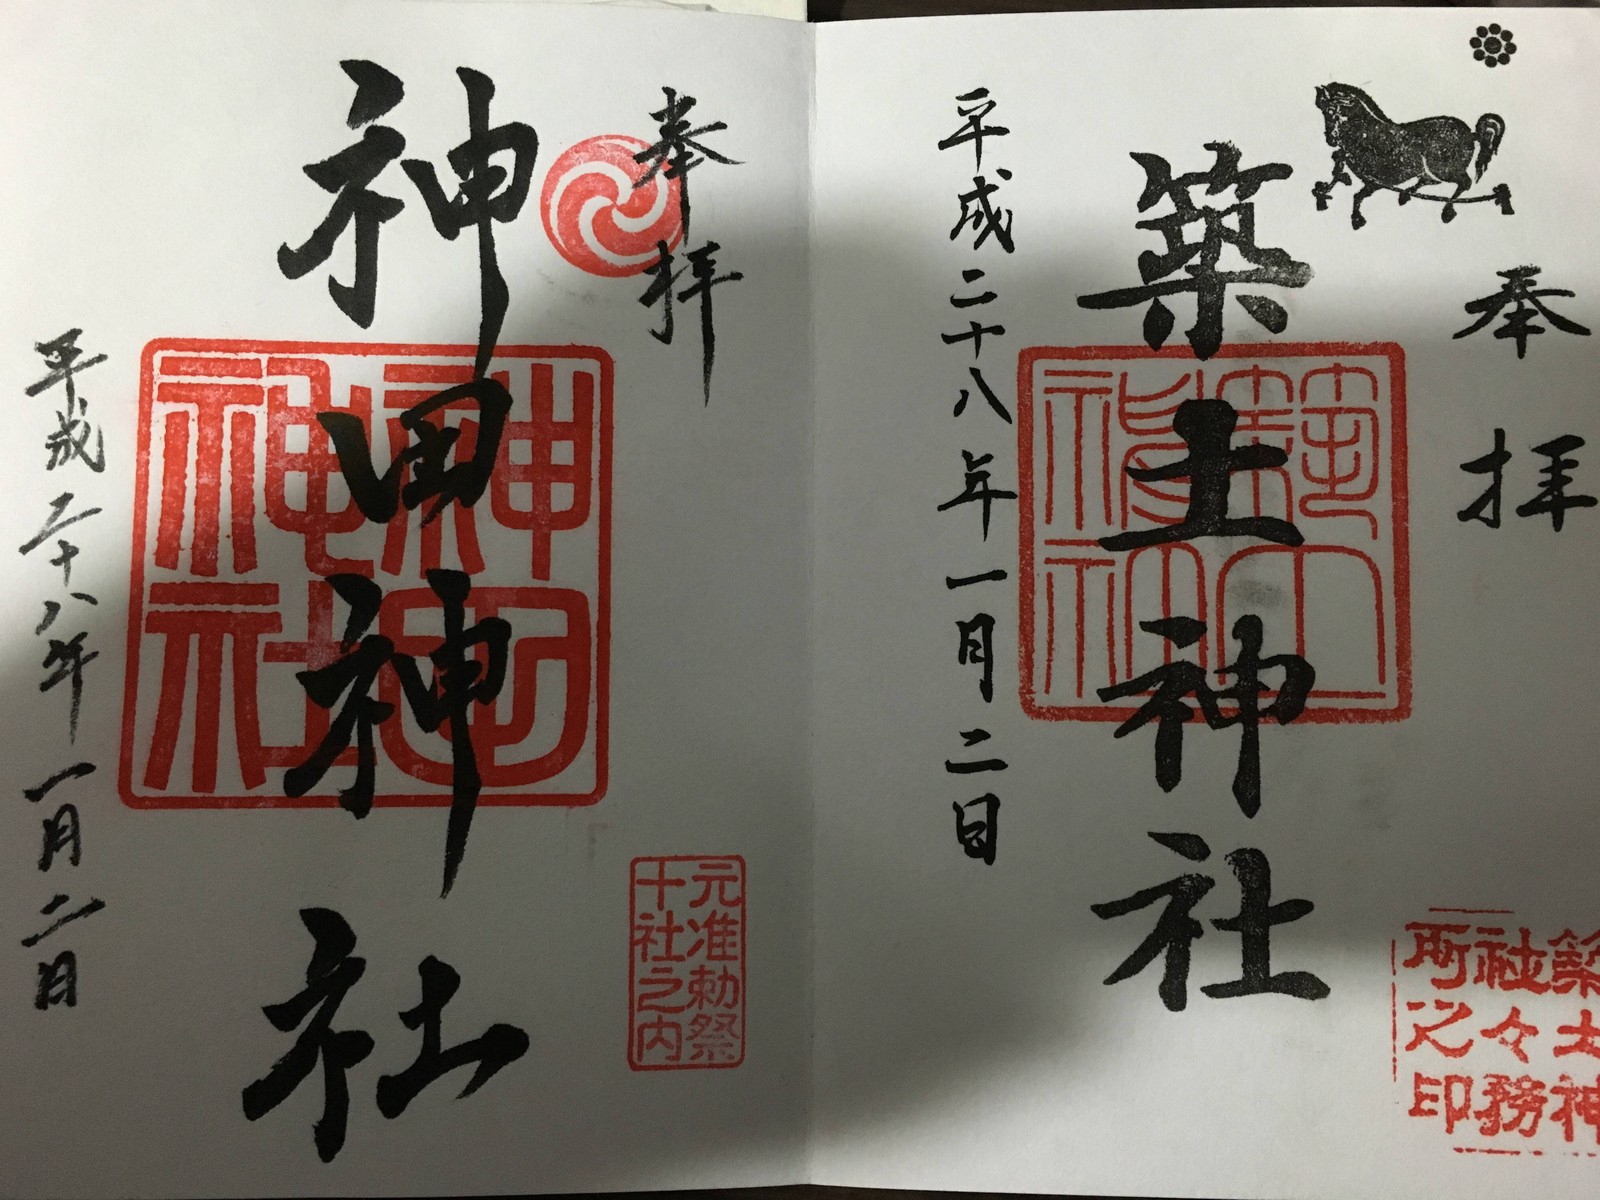 奉拝
築土神社
平成二十八年一月二日
築土神
社々務
所之印
奉拝
神田神社
平成二十八年一月二日
神田
神社
元准勅祭
十社之内